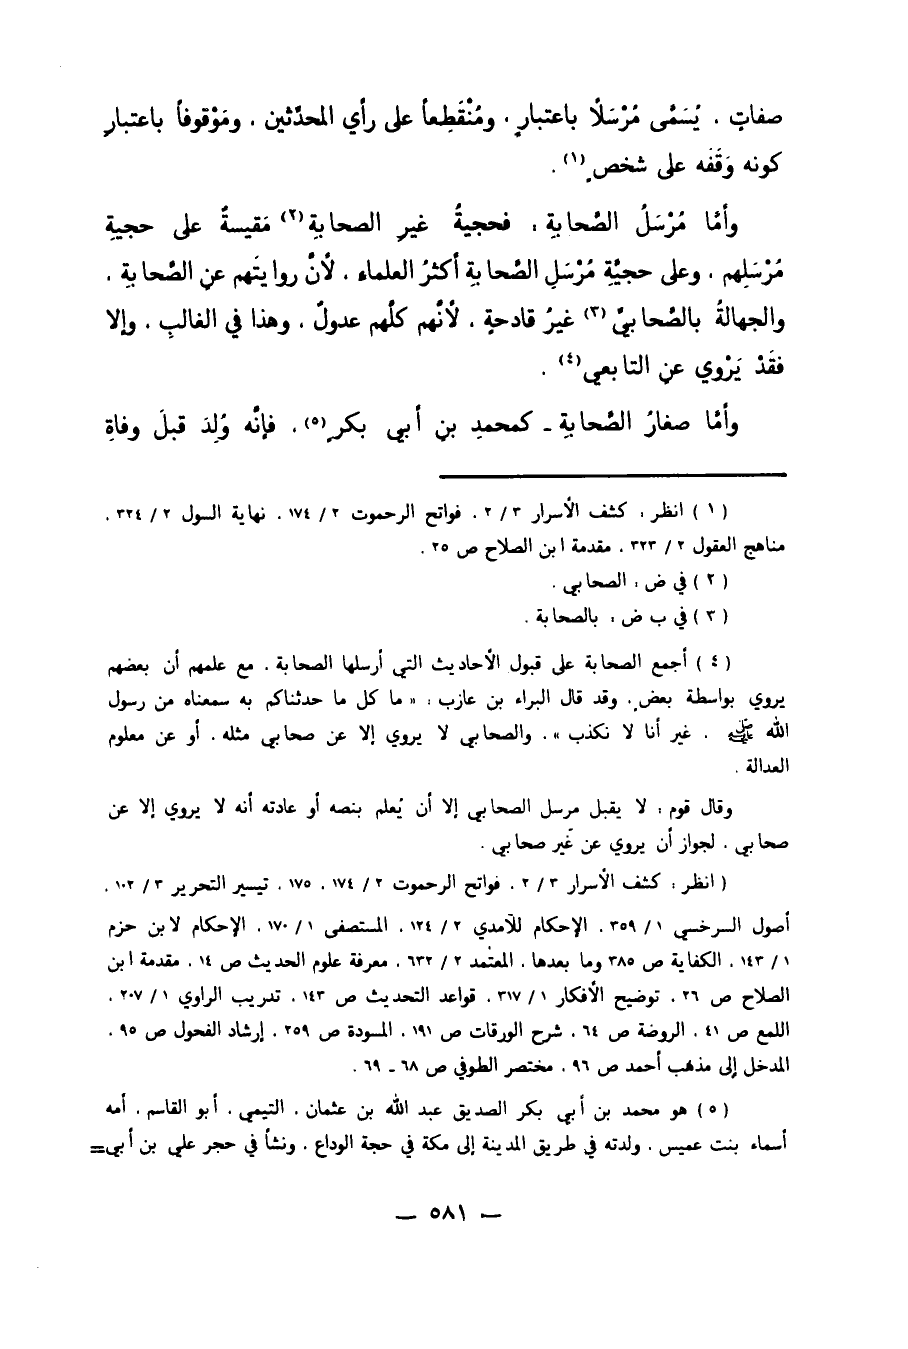 صفاتٍ ، يُسَمَّى مُرْسَلًا باعتبارٍ ، ومُنْقَطِعاً على رأي المحدِّثين ، ومَوْقوفاً باعتبارِ
كونه وَقَفَه على شخصٍ(١) .
وأمَّا مُرْسَلُ الصَّحابةِ ، فحجيةُ غيرِ الصحابةِ(٢) مَقيسةٌ على حجيةِ
مُرْسَلِهم ، وعلى حجيَّةِ مُرْسَلِ الصَّحابةِ أكثرُ العلماء ، لأنَّ روايتَهم عنِ الصَّحابةِ ،
والجهالةُ بالصَّحابيِّ(٣) غيرُ قادحةٍ ، لأنَّهم كلَّهم عدولٌ ، وهذا في الغالبِ ، وإلا
فقَدْ يَرْوي عنِ التابعي(٤) .
وأمَّا صغارُ الصَّحابةِ ـ كمحمدِ بنِ أبي بكرٍ(٥) ، فإنَّه وُلِدَ قبلَ وفاةِ
( ١ ) انظر : كشف الأسرار ٣ / ٢ ، فواتح الرحموت ٢ / ١٧٤ ، نهاية السول ٢ / ٣٢٤ ،
مناهج العقول ٢ / ٣٢٣ ، مقدمة ابن الصلاح ص ٢٥ .
( ٢ ) في ض : الصحابي .
( ٣ ) في ب ض : بالصحابة .
( ٤ ) أجمع الصحابة على قبول الأحاديث التي أرسلها الصحابة ، مع علمهم أن بعضهم
يروي بواسطة بعضٍ ، وقد قال البراء بن عازب : « ما كل ما حدثناكم به سمعناه من رسول
الله ﷺ ، غير أنا لا نكذب » ، والصحابي لا يروي إلا عن صحابي مثله ، أو عن معلوم
العدالة .
وقال قوم : لا يقبل مرسل الصحابي إلا أن يُعلم بنصه أو عادته أنه لا يروي إلا عن
صحابي ، لجواز أن يروي عن غير صحابي .
( انظر : كشف الأسرار ٣ / ٢ ، فواتح الرحموت ٢ / ١٧٤ ، ١٧٥ ، تيسير التحرير ٣ / ١٠٢ ،
أصول السرخسي ١ / ٣٥٩ ، الإحكام للآمدي ٢ / ١٢٤ ، المستصفى ١ / ١٧٠ ، الإحكام لابن حزم
١ / ١٤٣ ، الكفاية ص ٣٨٥ وما بعدها ، المعتمد ٢ / ٦٣٢ ، معرفة علوم الحديث ص ١٤ ، مقدمة ابن
الصلاح ص ٢٦ ، توضيح الأفكار ١ / ٣١٧ ، قواعد التحديث ص ١٤٣ ، تدريب الراوي ١ / ٢٠٧ ،
اللمع ص ٤١ ، الروضة ص ٦٤ ، شرح الورقات ص ١٩١ ، المسودة ص ٢٥٩ ، إرشاد الفحول ص ٩٥ ،
المدخل إلى مذهب أحمد ص ٩٦ ، مختصر الطوفي ص ٦٨ ـ ٦٩ .
( ٥ ) هو محمد بن أبي بكر الصديق عبد الله بن عثمان ، التيمي ، أبو القاسم ، أمه
أسماء بنت عميس ، ولدته في طريق المدينة إلى مكة في حجة الوداع ، ونشأ في حجر علي بن أبي=
— ٥٨١ —